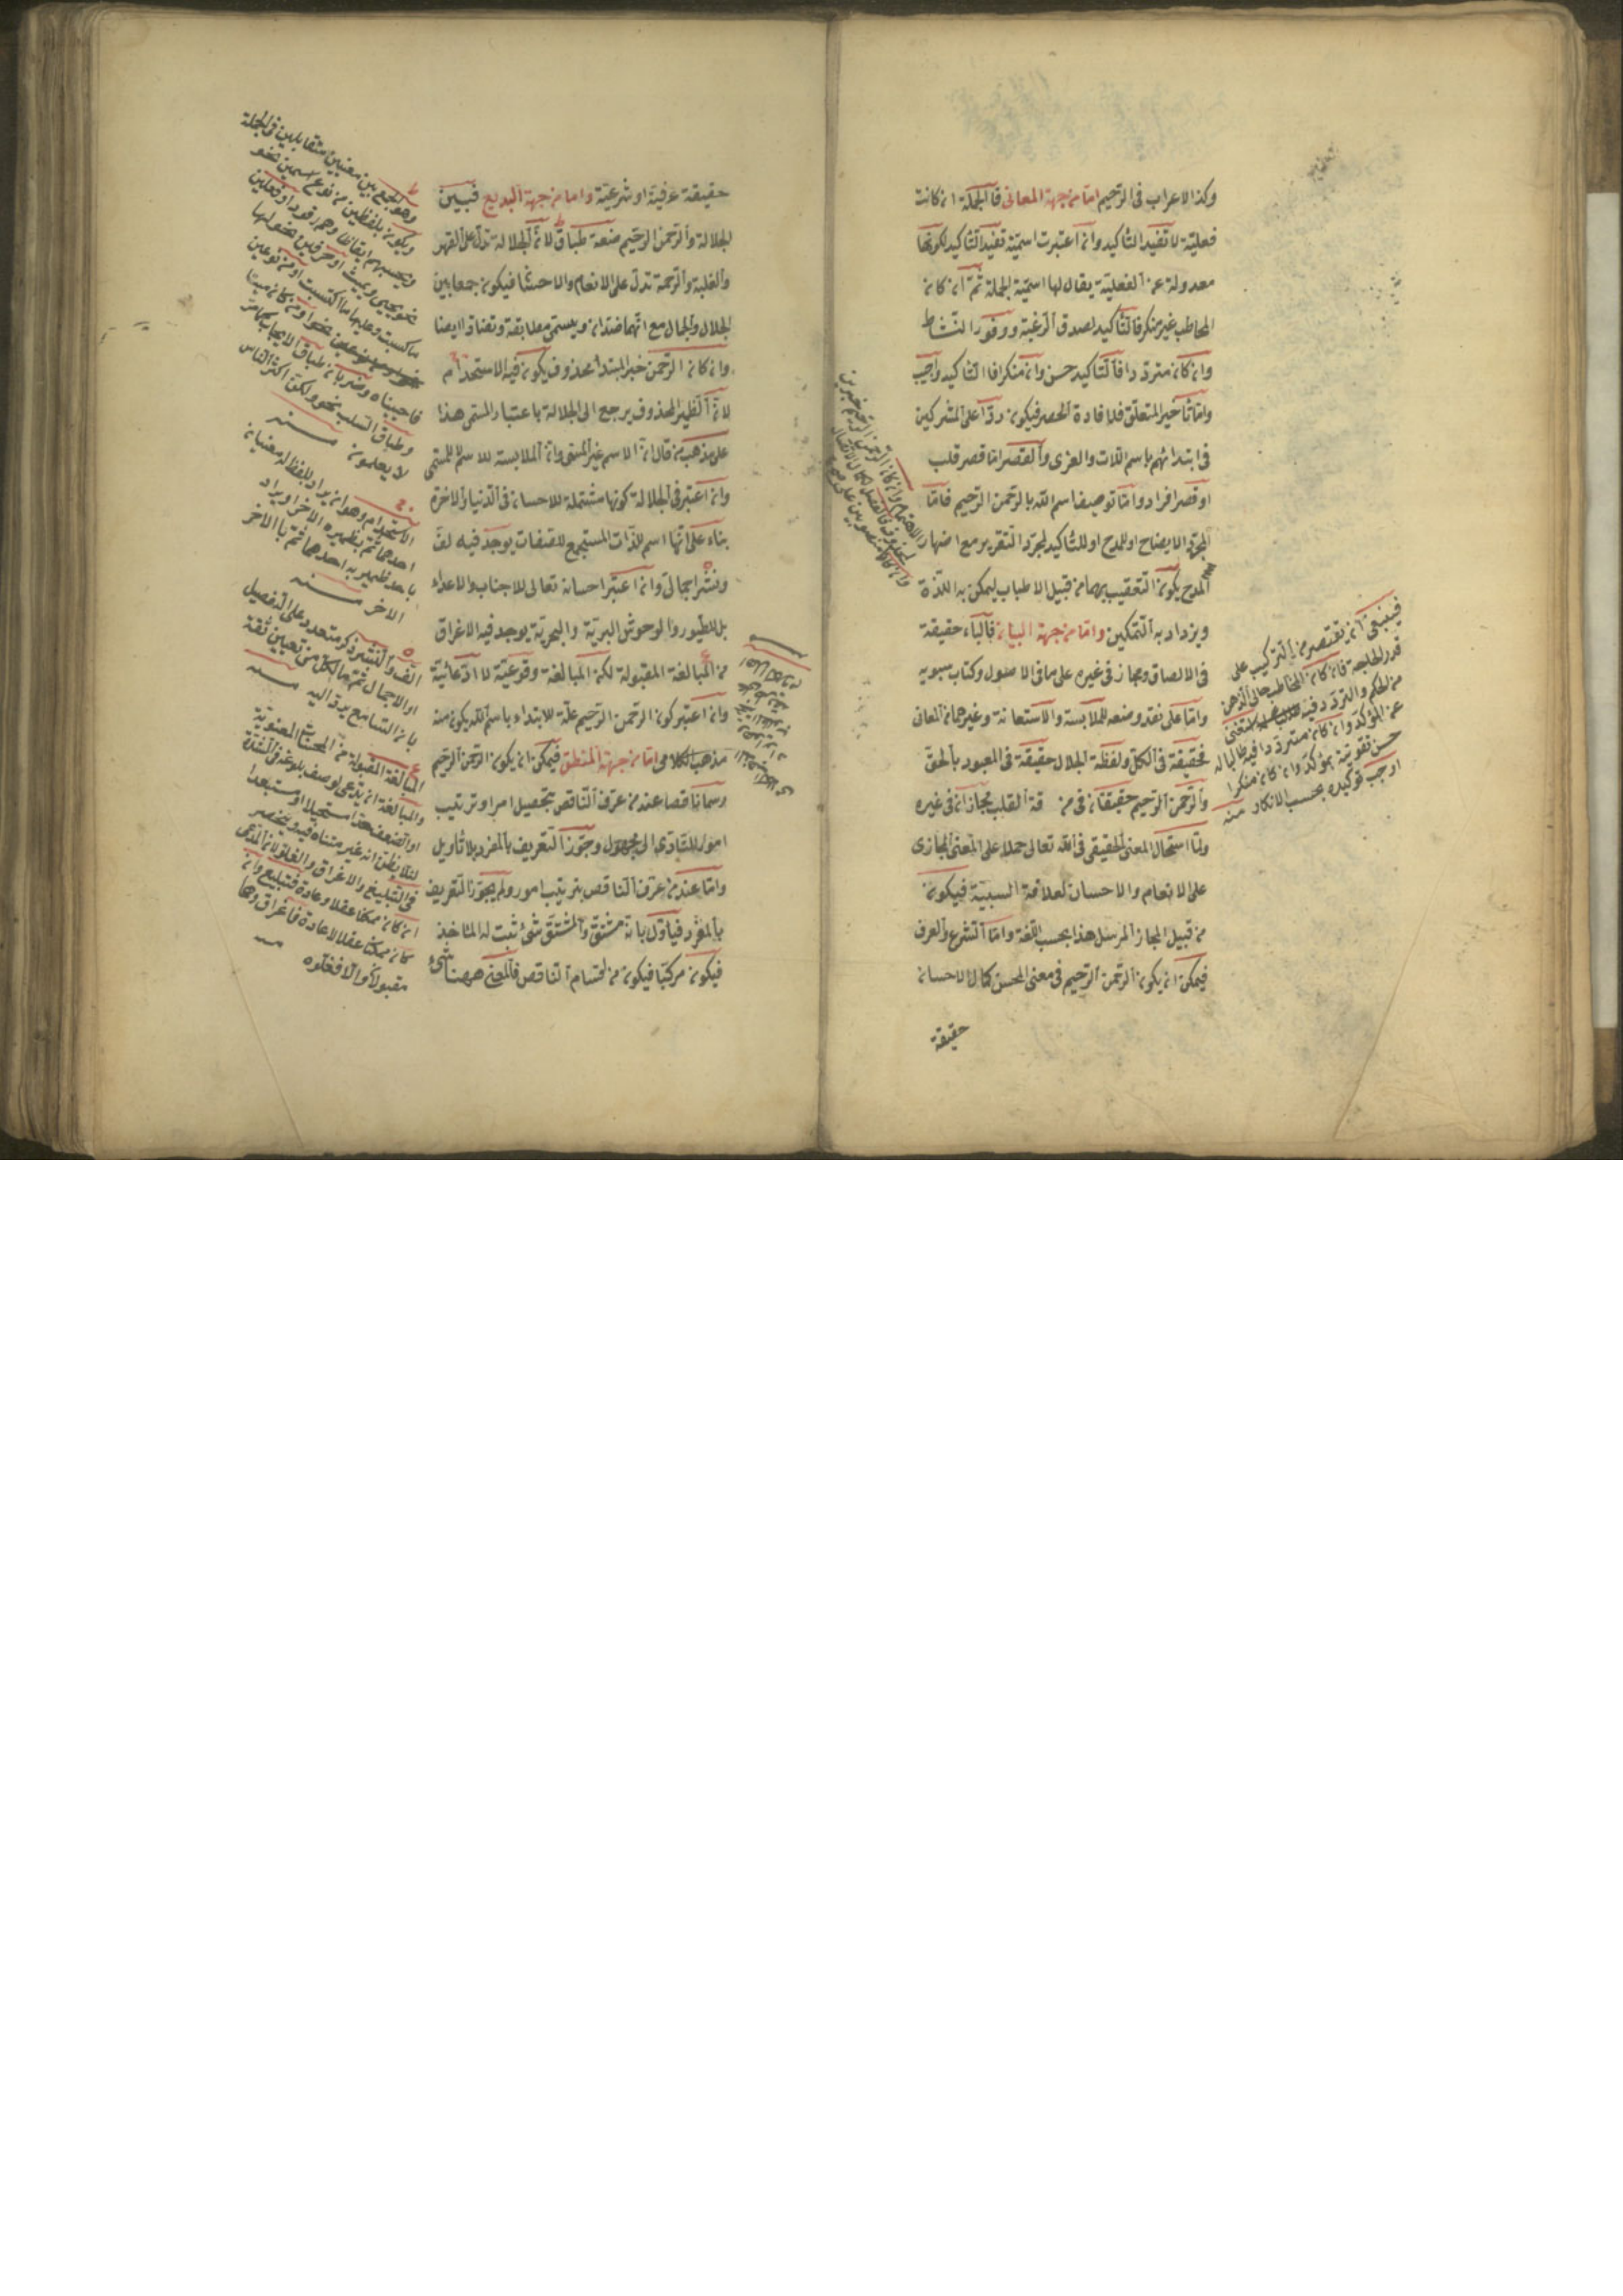 وكذا الاعراب فى الرّحيم امّا من جهة المعانى فالجملة ان كانت
فعليّة لا تفيد التاكيد وان اعتبرت اسميّة تفيد التاكيد لكونها
معدولة عن الفعلية يقال لها اسميّة الجملة ثمّ ان كان
المخاطب غير منكر فالتّاكيد لصدق الرّغبة ووفور النّشاط
وان كان متردّدا فالتّاكيد حسن وان منكرا فالتّاكيد واجب
وامّا تاخير المتعلّق فلافادة الحصر فيكون ردّا على المشركين
فى ابتدائهم باسم اللات والعزى والقصر امّا قصر قلب
او قصر افراد وامّا توصيف اسم اللّه بالرّحمن الرّحيم فامّا
لمجرّد الايضاح او للمدح او للتّاكيد لمجرّد التقرير مع اضهار
المدح يكون التّعقيب بهما من قبيل الاطناب ليمكن به اللذّة
ويزداد به التّمكين وامّا من جهة البيان فالباء حقيقة
فى الالصاق ومجاز فى غيره على ما فى الاصول وكتاب سبويه
وامّا على تقدير وضعه للملابسة والاستعانة وغيرهما من المعان
فحقيقة فى الكلّ ولفظة الجلال حقيقة فى المعبود بالحقّ
والرّحمن الرّحيم حقيقتان فى من قة القلب مجازان فى غيره
ولمّا استحال المعنى الحقيقى فى اللّه تعالى حملا على المعنى المجازى
على الانعام والاحسان لعلاقة السببيّة فيكون
من قبيل المجاز المرسل هذا بحسب اللّغة وامّا الشرع والعرف
فيمكن ان يكون الرّحمن الرّحيم فى معنى المحسن كمال الاحسان
حقيقة
فينبغى ان يقتصر من التركيب على
قدر الحاجة فان كان المخاطب خالى الذهن
من الحكم والتردد فيه استغنى
عن المؤكد وان كان مترددا فيه طالبا له
حسن تقويته بمؤكد وان كان منكرا
اوجب توكيده بحسب الانكار منه
حقيقة عرفية او شرعيّة وامّا من جهة البديع فبين
الجلالة والرّحمن الرّحيم صنعة طباق لانّ الجلالة تدلّ على القهر
والغلبة والرّحمة تدلّ على الانعام والاحسان فيكون جمعا بين
الجلال والجمال مع انّهما ضدّان ويسمّى مطابقة وتضادا ايضا
وان كان الرّحمن خبر المبتدأ محذوف يكون فيه الاستخدام
لانّ الضّمير المحذوف يرجع الى الجلالة باعتبار المسمى هذا
على مذهب من قال انّ الاسم غير المسمّى وانّ الملابسة للاسم لا للمسمّى
وان اعتبر فى الجلالة كونها مشتملة للاحسان فى الدّنيا والاخرة
بناء على انّها اسم للذّات المستجمع للصّفات يوجد فيه لفّ
ونشر اجمالىّ وان اعتبر احسانه تعالى للاحباب والاعداء
بل للطيور والوحوش البريّة والبحريّة يوجد فيه الاغراق
من المبالغة المقبولة لكن المبالغة وقوعيّة لا ادّعائيّة
وان اعتبر كون الرّحمن الرّحيم علّة للابتداء باسم اللّه يكون منه
مذهب الكلامى امّا من جهة المنطق فيمكن ان يكون الرّحمن الرّحيم
رسما ناقصا عند من عرّف النّاقص بتحصيل امر او ترتيب
امور للتّادّى الى مجهول وجوّز التّعريف بالمفرد بلا تاويل
وامّا عند من عرّف النّاقص بترتيب امور ولم يجوّز التّعريف
بالمفرد فيأوّل بانّه مشتقّ والمشتقّ شئ ثبت له المأخذ
فيكون مركّبا فيكون من اقسام النّاقص فالمعنى ههنا شئ
وهو الجمع بين معنيين متقابلين فى الجملة
ويكون بلفظين من نوع اسمين نحو
وتحسبهم ايقاظا وهم رقود او فعلين
نحو يحيى ويميت او حرفين نحو لها
ما كسبت وعليها ما اكتسبت او من نوعين
نحو او من كان ميتا
فاحييناه وضربان طباق الايجاب كما مرّ
وطباق السلب نحو ولكن اكثر الناس
لا يعلمون منه
الاستخدام وهو ان يراد بلفظ له معنيان
احدهما ثم بضميره الاخر او يراد
باحد ضميريه احدهما ثم بالاخر
الاخر منه
اللف والنشر ذكر متعدد على التفصيل
او الاجمال ثم ما لكل من تعيين ثقة
بان السامع يرد اليه منه
المبالغة المقبولة من المحسنات المعنوية
والمبالغة ان يدعى لوصف بلوغه فى الشدة
او الضعف حدا مستحيلا او مستبعدا
لئلا يظن انه غير متناه فيه وينحصر
فى التبليغ والاغراق والغلو لان المدعى
ان كان ممكنا عقلا وعادة فتبليغ وان
كان ممكنا عقلا لا عادة فاغراق وهما
مقبولان والا فغلو منه